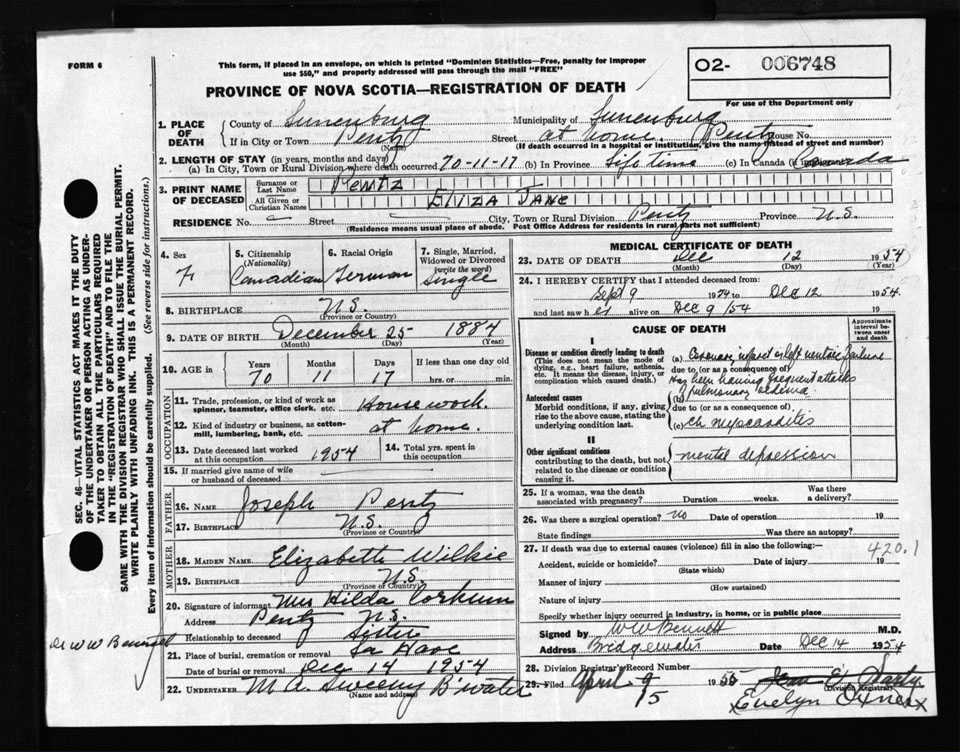 FORM 6
This form, if placed in an envelope, on which is printed "Dominion Statistics—Free, penalty for improper
use $50," and properly addressed will pass through the mail "FREE"
O2- 006748
PROVINCE OF NOVA SCOTIA—REGISTRATION OF DEATH
For use of the Department only
1. PLACE OF DEATH
County of Lunenburg Municipality of Lunenburg
If in City or Town Pentz Street at home. Pentz House No.
(Name) (If death occurred in a hospital or institution, give the name instead of street and number)
2. LENGTH OF STAY (in years, months and days)
(a) In City, Town or Rural Division where death occurred 70-11-17 (b) In Province Life time (c) In Canada (if immigrant) Canada
3. PRINT NAME OF DECEASED
Surname or Last Name Pentz
All Given or Christian Names Eliza Jane
RESIDENCE No. Street City, Town or Rural Division Pentz Province N.S.
(Residence means usual place of abode. Post Office Address for residents in rural parts not sufficient)
4. Sex F
5. Citizenship (Nationality) Canadian
6. Racial Origin German
7. Single, Married, Widowed or Divorced (write the word) Single
8. BIRTHPLACE N.S.
(Province or Country)
9. DATE OF BIRTH December 25 1884
(Month) (Day) (Year)
10. AGE in Years Months Days If less than one day old
70 11 17 hrs. or min.
OCCUPATION
11. Trade, profession, or kind of work as spinner, teamster, office clerk, etc. Housework.
12. Kind of industry or business, as cotton-mill, lumbering, bank, etc. at home.
13. Date deceased last worked at this occupation 1954
14. Total yrs. spent in this occupation
15. If married give name of wife or husband of deceased
FATHER
16. NAME Joseph Pentz
17. BIRTHPLACE N.S.
MOTHER
18. MAIDEN NAME Elizabeth Wilkie
19. BIRTHPLACE N.S.
(Province or Country)
20. Signature of informant Mrs Hilda Corkum
Address Pentz N.S.
Relationship to deceased Sister
21. Place of burial, cremation or removal La Have
Date of burial or removal Dec 14 1954
22. UNDERTAKER M A Sweeny B'water
(Name and address)
MEDICAL CERTIFICATE OF DEATH
23. DATE OF DEATH Dec 12 1954
(Month) (Day) (Year)
24. I HEREBY CERTIFY that I attended deceased from:
Sept 9 1954 to Dec 12 1954.
and last saw her alive on Dec 9/54 19
CAUSE OF DEATH
Approximate interval between onset and death
I
Disease or condition directly leading to death
(This does not mean the mode of dying, e.g., heart failure, asthma, etc. It means the disease, injury, or complication which caused death.)
(a) Coronary infarct or left ventric. failure
due to (or as a consequence of)
Has been having frequent attacks
(b) pulmonary oedema
Antecedent causes
Morbid conditions, if any, giving rise to the above cause, stating the underlying condition last.
due to (or as a consequence of).
(c) Ch myocarditis
II
Other significant conditions
contributing to the death, but not related to the disease or condition causing it.
mental depression
25. If a woman, was the death associated with pregnancy? Duration weeks. Was there a delivery?
26. Was there a surgical operation? No Date of operation 19
State findings Was there an autopsy?
27. If death was due to external causes (violence) fill in also the following:— 420.1
Accident, suicide or homicide? Date of injury 19
(State which)
Manner of injury
(How sustained)
Nature of injury
Specify whether injury occurred in industry, in home, or in public place
Signed by W W Bennett M.D.
Address Bridgewater Date Dec 14 1954
28. Division Registrar's Record Number
29. Filed April 9/5 1955
(Division Registrar)
Evelyn
SEC. 46—VITAL STATISTICS ACT MAKES IT THE DUTY
OF THE UNDERTAKER OR PERSON ACTING AS UNDER-
TAKER TO OBTAIN ALL THE PARTICULARS REQUIRED
IN THE "REGISTRATION OF DEATH" AND TO FILE THE
SAME WITH THE DIVISION REGISTRAR WHO SHALL ISSUE THE BURIAL PERMIT.
WRITE PLAINLY WITH UNFADING INK. THIS IS A PERMANENT RECORD.
Every item of information should be carefully supplied. (See reverse side for instructions.)
Dr W W Bennett